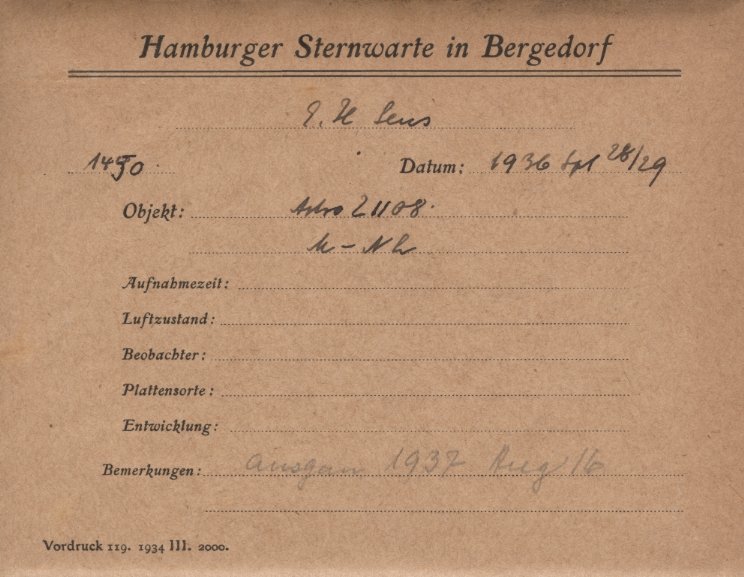 Hamburger Sternwarte in Bergedorf
1490 Datum: 1936 Spt 28/29
Objekt: Astro Z 1108.
Aufnahmezeit:
Luftzustand:
Beobachter:
Plattensorte:
Entwicklung:
Bemerkungen: 1937 Aug 16
Vordruck 119. 1934 III. 2000.